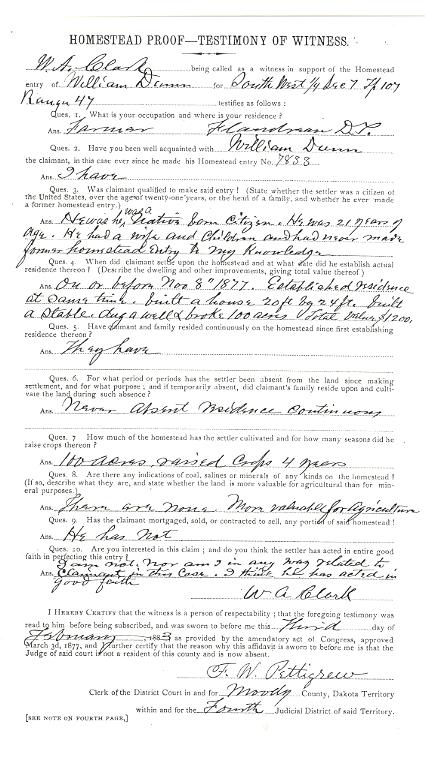 HOMESTEAD PROOF—TESTIMONY OF WITNESS.
W. A. Clark being called as a witness in support of the Homestead
entry of William Dunn for South West 1/4 Sec 7 Tp 107
Range 47 testifies as follows:
Ques. 1. What is your occupation and where is your residence?
Ans. Farmer Flandreau D.T.
Ques. 2. Have you been well acquainted with William Dunn
the claimant, in this case ever since he made his Homestead entry No. 7833
Ans. I have
Ques. 3. Was claimant qualified to make said entry? (State whether the settler was a citizen of
the United States, over the age of twenty-one years, or the head of a family, and whether he ever made
a former homestead entry.)
Ans. He was a native born Citizen. He was 21 years of
age. He had a wife and Children and had never made
former homestead entry to my knowledge
Ques. 4. When did claimant settle upon the homestead and at what date did he establish actual
residence thereon? (Describe the dwelling and other improvements, giving total value thereof.)
Ans. On or before Nov 8" 1877. Established residence
at same time. built a house 20 ft by 24 ft. built
a Stable. dug a well & broke 100 acres. Total value $1200.
Ques. 5. Have claimant and family resided continuously on the homestead since first establishing
residence thereon?
Ans. They have
Ques. 6. For what period or periods has the settler been absent from the land since making
settlement, and for what purpose; and if temporarily absent, did claimant's family reside upon and culti-
vate the land during such absence?
Ans. Never absent residence continuous
Ques. 7 How much of the homestead has the settler cultivated and for how many seasons did he
raise crops thereon?
Ans. 100 acres, raised Crops 4 years
Ques. 8. Are there any indications of coal, salines or minerals of any kinds on the homestead?
(If so, describe what they are, and state whether the land is more valuable for agricultural than for min-
eral purposes.)
Ans. There are none. More valuable for Agriculture
Ques. 9. Has the claimant mortgaged, sold, or contracted to sell, any portion of said homestead?
Ans. He has not
Ques. 10. Are you interested in this claim; and do you think the settler has acted in entire good
faith in perfecting this entry?
Ans. I am not. Nor am I in any way related to
Claimant in this Case. I think he has acted in
good faith
W A Clark
I HEREBY CERTIFY that the witness is a person of respectability; that the foregoing testimony was
read to him before being subscribed, and was sworn to before me this Third day of
February, 1883 as provided by the amendatory act of Congress, approved
March 3d, 1877, and I further certify that the reason why this affidavit is sworn to before me is that the
Judge of said court is not a resident of this county and is now absent.
F. W. Pettigrew
Clerk of the District Court in and for Moody County, Dakota Territory
within and for the Fourth Judicial District of said Territory.
[SEE NOTE ON FOURTH PAGE,]